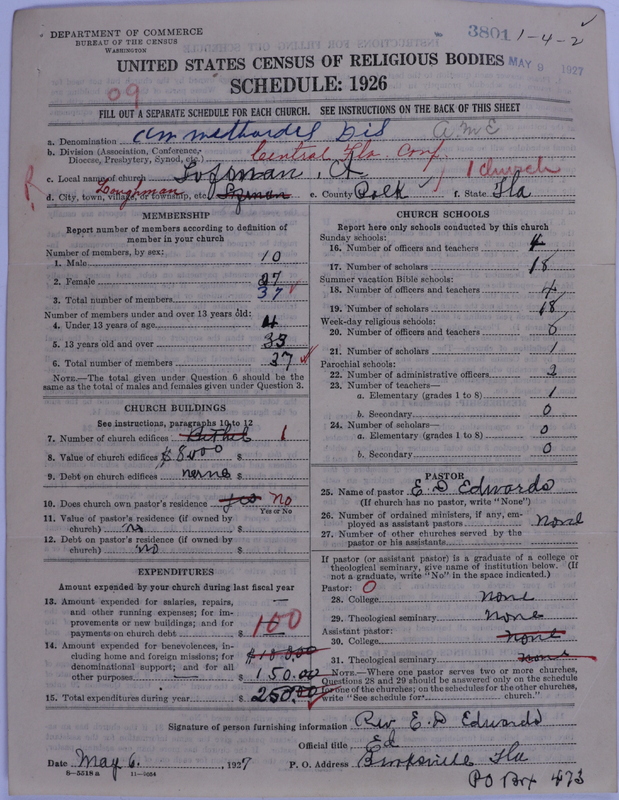 DEPARTMENT OF COMMERCE
BUREAU OF THE CENSUS
WASHINGTON
3801 1-4-2
MAY 9 1927
UNITED STATES CENSUS OF RELIGIOUS BODIES
SCHEDULE: 1926
09
FILL OUT A SEPARATE SCHEDULE FOR EACH CHURCH. SEE INSTRUCTIONS ON THE BACK OF THIS SHEET
a. Denomination A M E
b. Division (Association, Conference, Diocese, Presbytery, Synod, etc.) Central Fla. Conf.
c. Local name of church
1 church
d. City, town, village, or township, etc. Loughman e. County Polk f. State Fla
MEMBERSHIP
Report number of members according to definition of member in your church
Number of members, by sex:
1. Male 10
2. Female 27
3. Total number of members 37
Number of members under and over 13 years old:
4. Under 13 years of age 4
5. 13 years old and over 33
6. Total number of members 37
NOTE.—The total given under Question 6 should be the same as the total of males and females given under Question 3.
CHURCH BUILDINGS
See instructions, paragraphs 10 to 12
7. Number of church edifices Bethel 1
8. Value of church edifices $8000 $
9. Debt on church edifices $
10. Does church own pastor's residence Yes No
Yes or No
11. Value of pastor's residence (if owned by church) no $
12. Debt on pastor's residence (if owned by church) no $
EXPENDITURES
Amount expended by your church during last fiscal year
13. Amount expended for salaries, repairs, and other running expenses; for improvements or new buildings; and for payments on church debt $ 100
14. Amount expended for benevolences, including home and foreign missions; for denominational support; and for all other purposes $ 150.00
15. Total expenditures during year $ 250.00
CHURCH SCHOOLS
Report here only schools conducted by this church
Sunday schools:
16. Number of officers and teachers 4
17. Number of scholars 18
Summer vacation Bible schools:
18. Number of officers and teachers 4
19. Number of scholars 18
Week-day religious schools:
20. Number of officers and teachers
21. Number of scholars 1
Parochial schools:
22. Number of administrative officers 2
23. Number of teachers—
a. Elementary (grades 1 to 8) 1
b. Secondary 0
24. Number of scholars—
a. Elementary (grades 1 to 8) 0
b. Secondary 0
PASTOR
25. Name of pastor E. D Edwards
(If church has no pastor, write "None")
26. Number of ordained ministers, if any, employed as assistant pastors None
27. Number of other churches served by the pastor or his assistants
If pastor (or assistant pastor) is a graduate of a college or theological seminary, give name of institution below. (If not a graduate, write "No" in the space indicated.)
Pastor: 0
28. College none
29. Theological seminary none
Assistant pastor:
30. College none
31. Theological seminary none
NOTE.—Where one pastor serves two or more churches, Questions 28 and 29 should be answered only on the schedule for one of the churches; on the schedules for the other churches, write "See schedule for church."
Signature of person furnishing information Rev E. D Edwards
Official title Ed
Date May 6, 1927 P. O. Address Brooksville Fla
S-5518 a 11-9664
PO Box 473